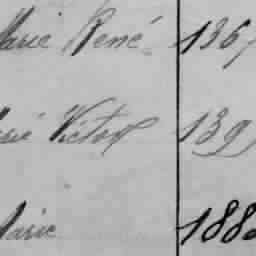 Marie René 136
Marie Victor 139
Marie 188